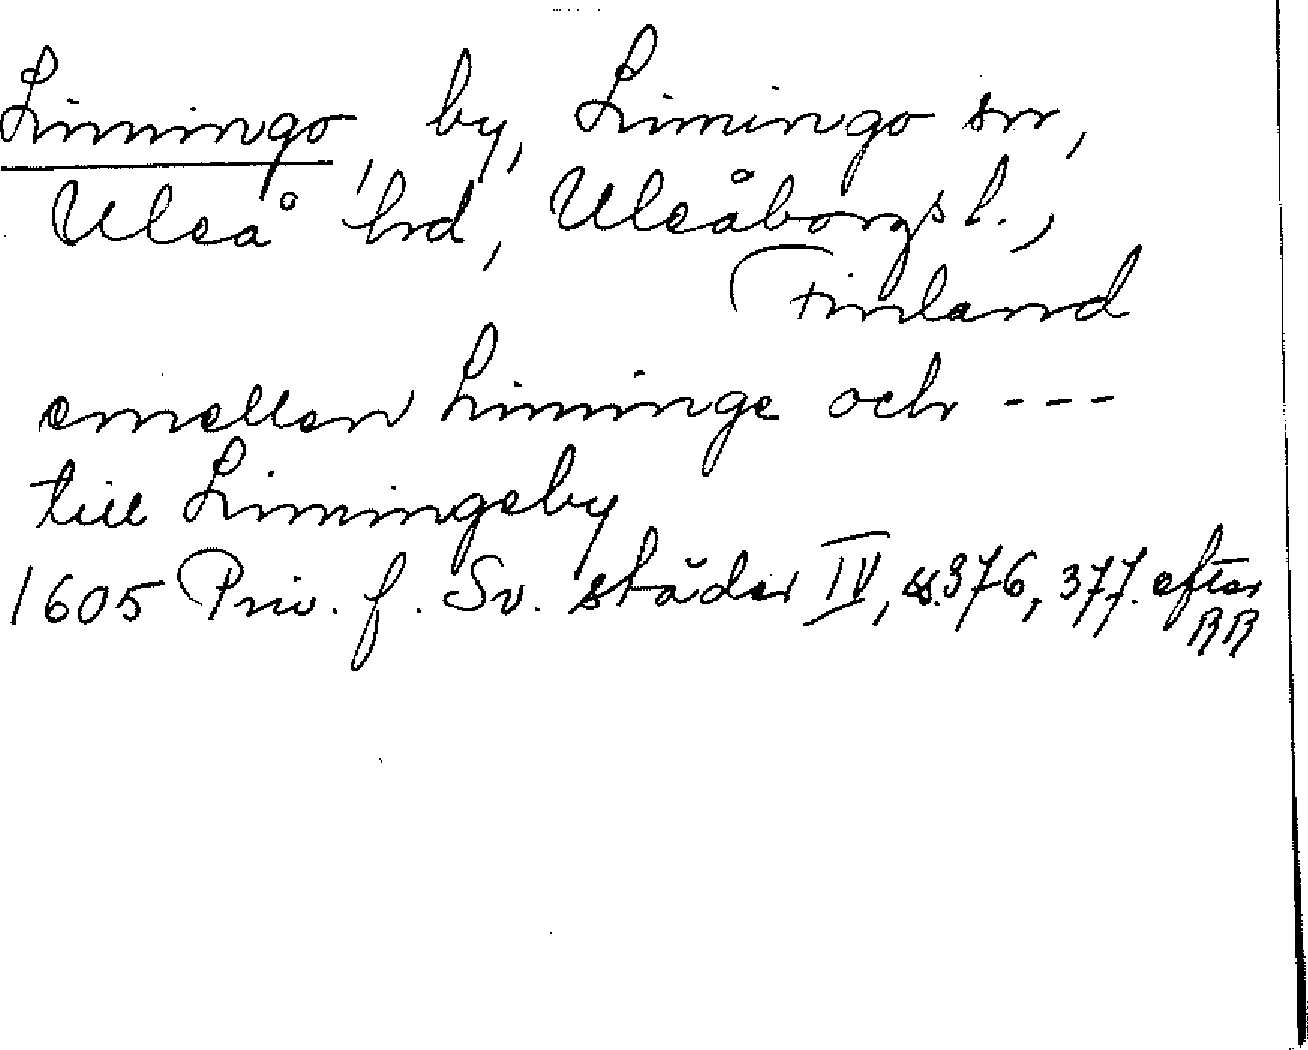 Limingo, by, Limingo sn,
Uleå hrd, Uleåborgs l.,
Finland
emellan Liminge och ---
till Limingeby
1605 Priv. f. Sv. städer IV, s. 376, 377. efter
RR